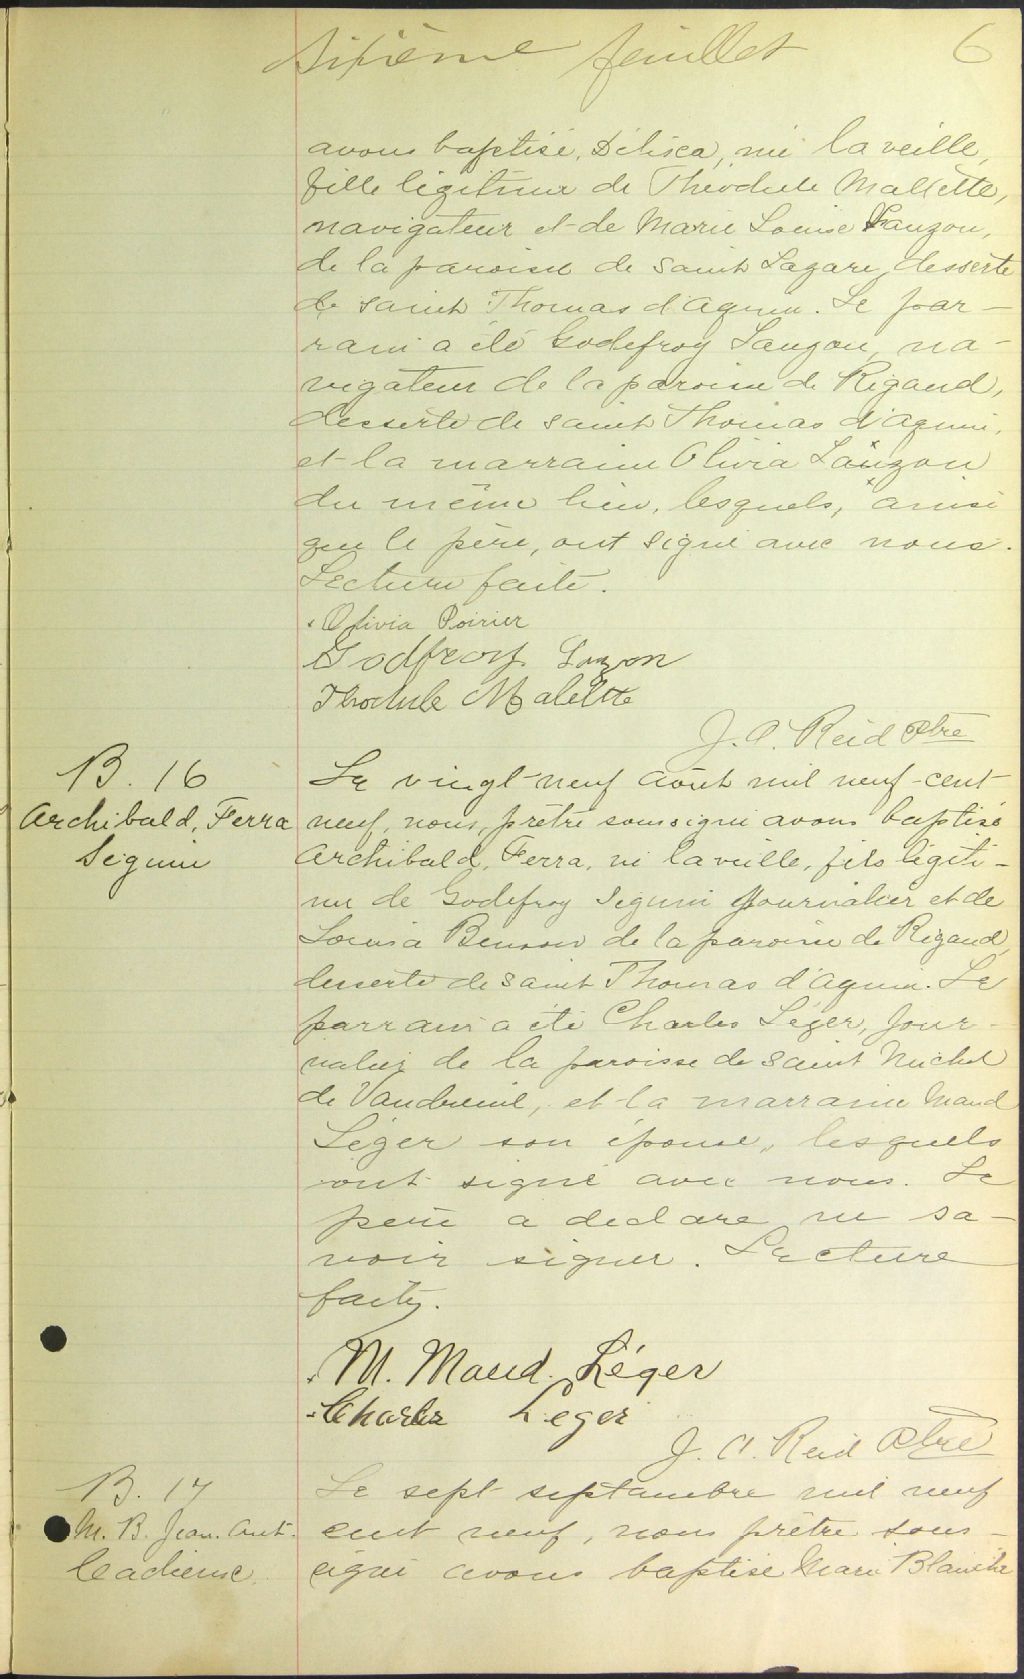 Sixième feuillet 6
avons baptisé, Délisca, né la veille,
fille légitime de Théodule Mallette,
navigateur et de Marie Louise Lauzon,
de la paroisse de Saint Lazare, desserte
de Saint Thomas d'Aquin. Le par-
rain a été Godefroy Lauzon, na-
vigateur de la paroisse de Rigaud,
desserte de Saint Thomas d'Aquin,
et la marraine Olivia Lauzon
du même lieu, lesquels, ainsi
que le père, ont signé avec nous.
Lecture faite.
Olivia Poirier
Godfroy Lauzon
Thodule Malette
J. A. Reid Ptre
B. 16
Archibald, Ferra
Seguin
Le vingt-neuf août mil neuf-cent
neuf, nous, prêtre soussigné avons baptisé
Archibald, Ferra, né la veille, fils légiti-
me de Godefroy Seguin journalier et de
Louisa Benson de la paroisse de Rigaud,
desserte de Saint Thomas d'Aquin. Le
parrain a été Charles Léger, jour-
nalier de la paroisse de Saint Michel
de Vaudreuil, et la marraine Maud
Léger son épouse, lesquels
ont signé avec nous. Le
père a declare ne sa-
voir signer. Lecture
faite.
M. Maud. Léger
Charles Leger
J. A. Reid Ptre
B. 17
M. B. Jean. Ant.
Cadieux
Le sept septembre mil neuf
cent neuf, nous prêtre sous-
signé avons baptisé Marie Blanche